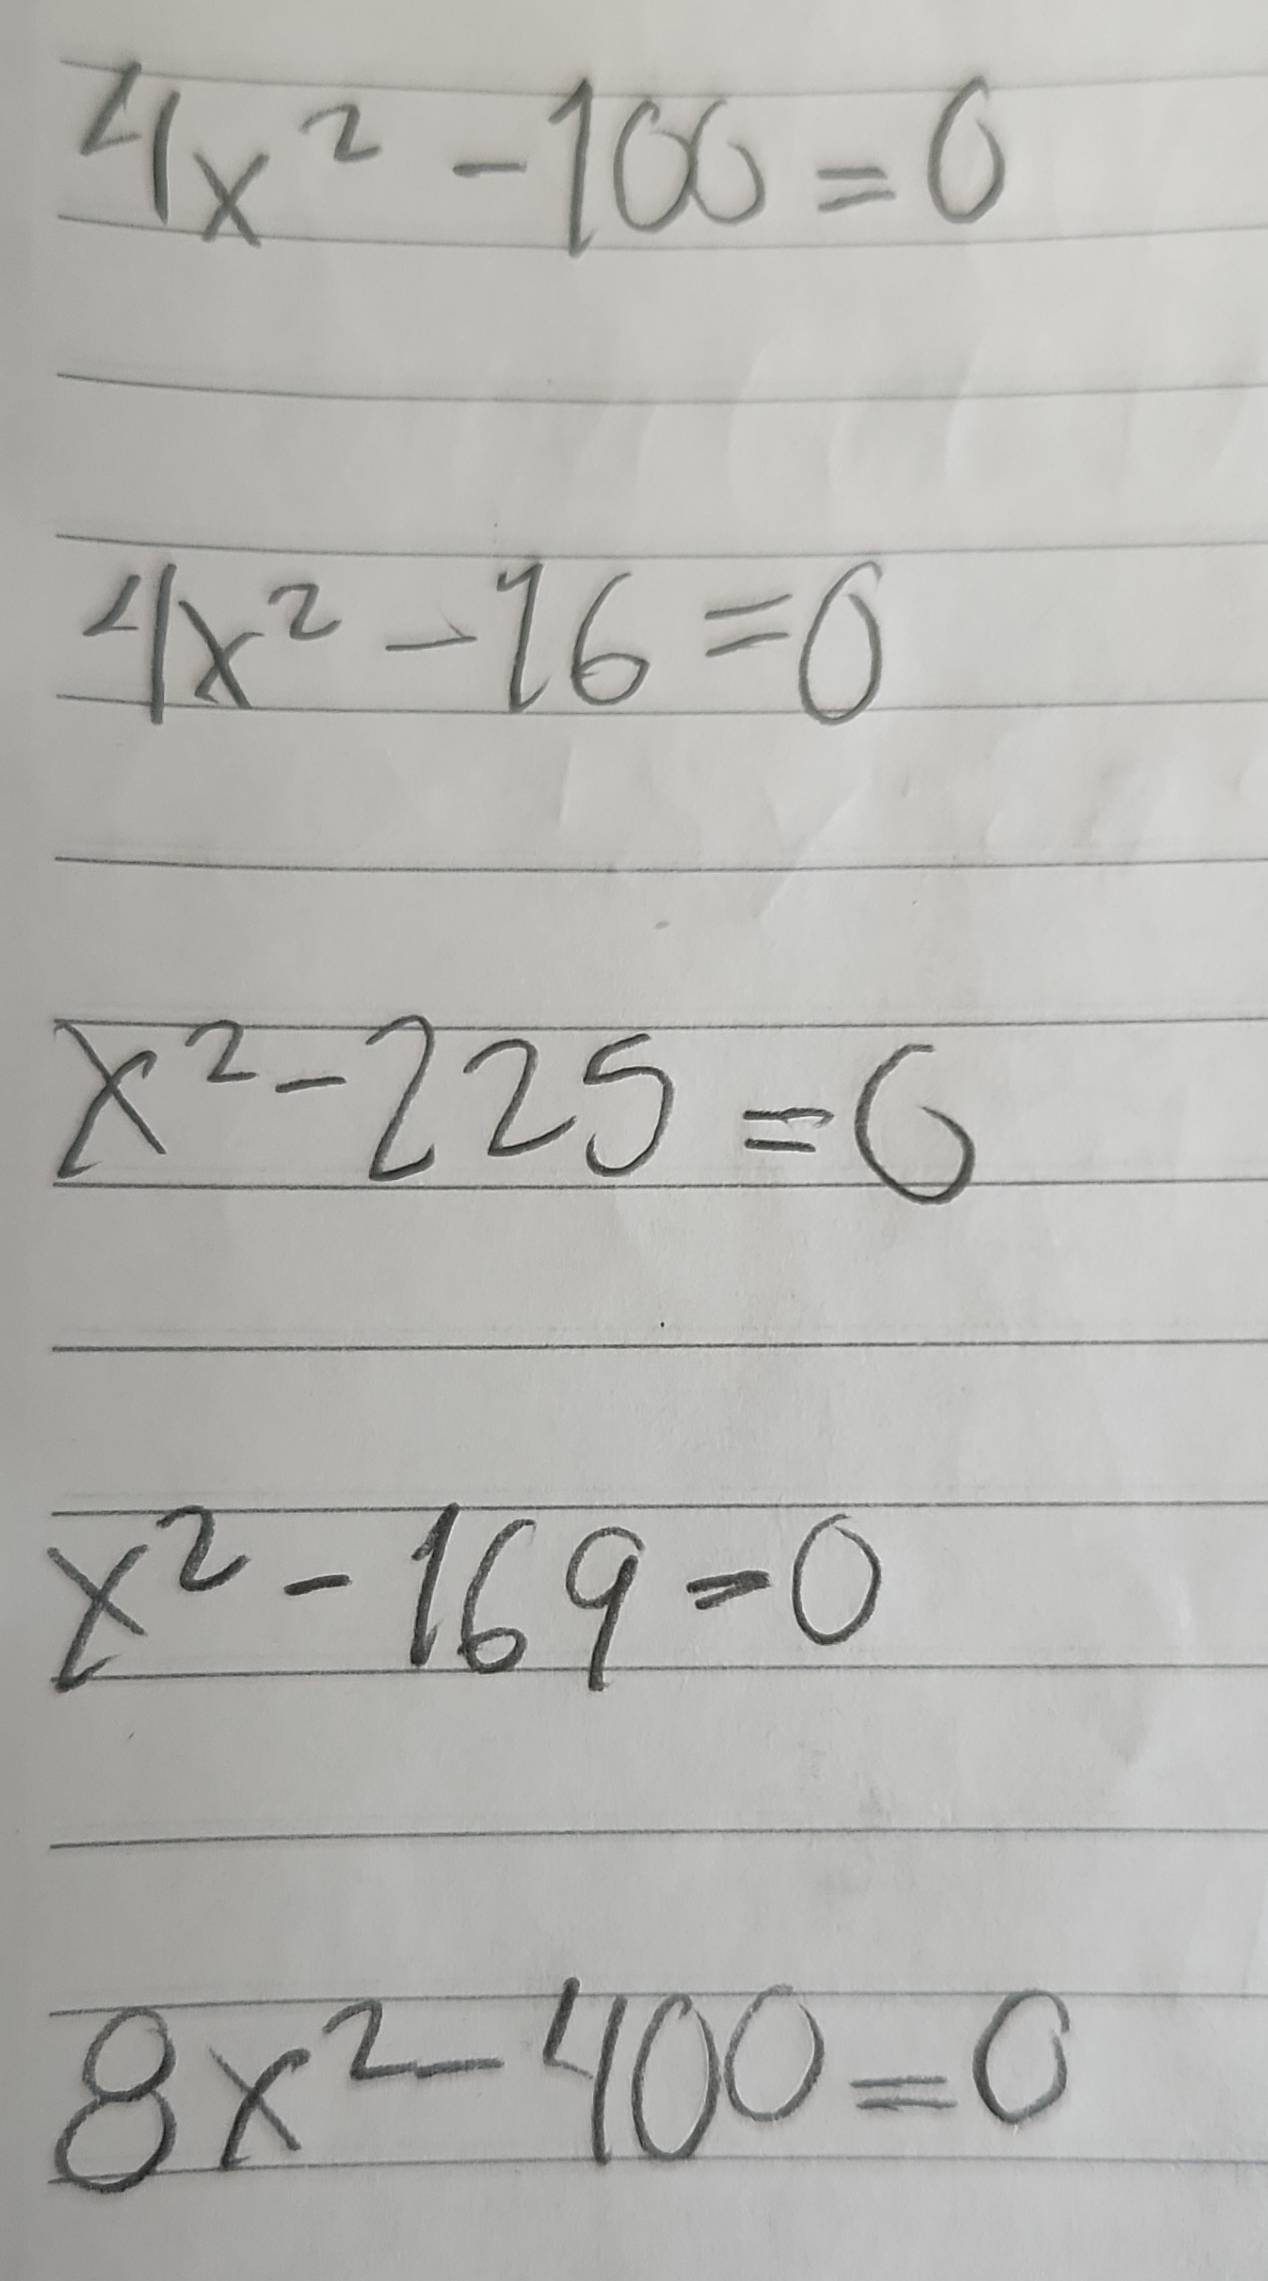 4x² - 100 = 0
4x² - 16 = 0
x² - 225 = 0
x² - 169 = 0
8x² - 400 = 0